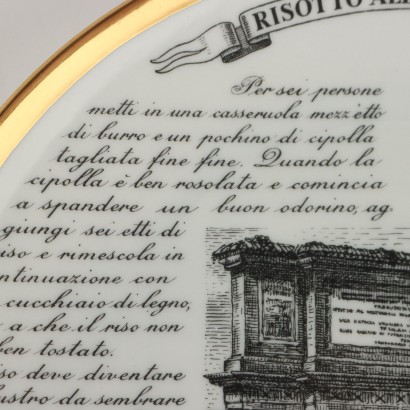 RISOTTO ALL
Per sei persone
metti in una casseruola mezz'etto
di burro e un pochino di cipolla
tagliata fine fine. Quando la
cipolla è ben rosolata e comincia
a spandere un buon odorino, ag.
giungi sei etti di
iso e rimescola in
ntinuazione con
cucchiaio di legno,
a che il riso non
ben tostato.
iso deve diventare
lustro da sembrare